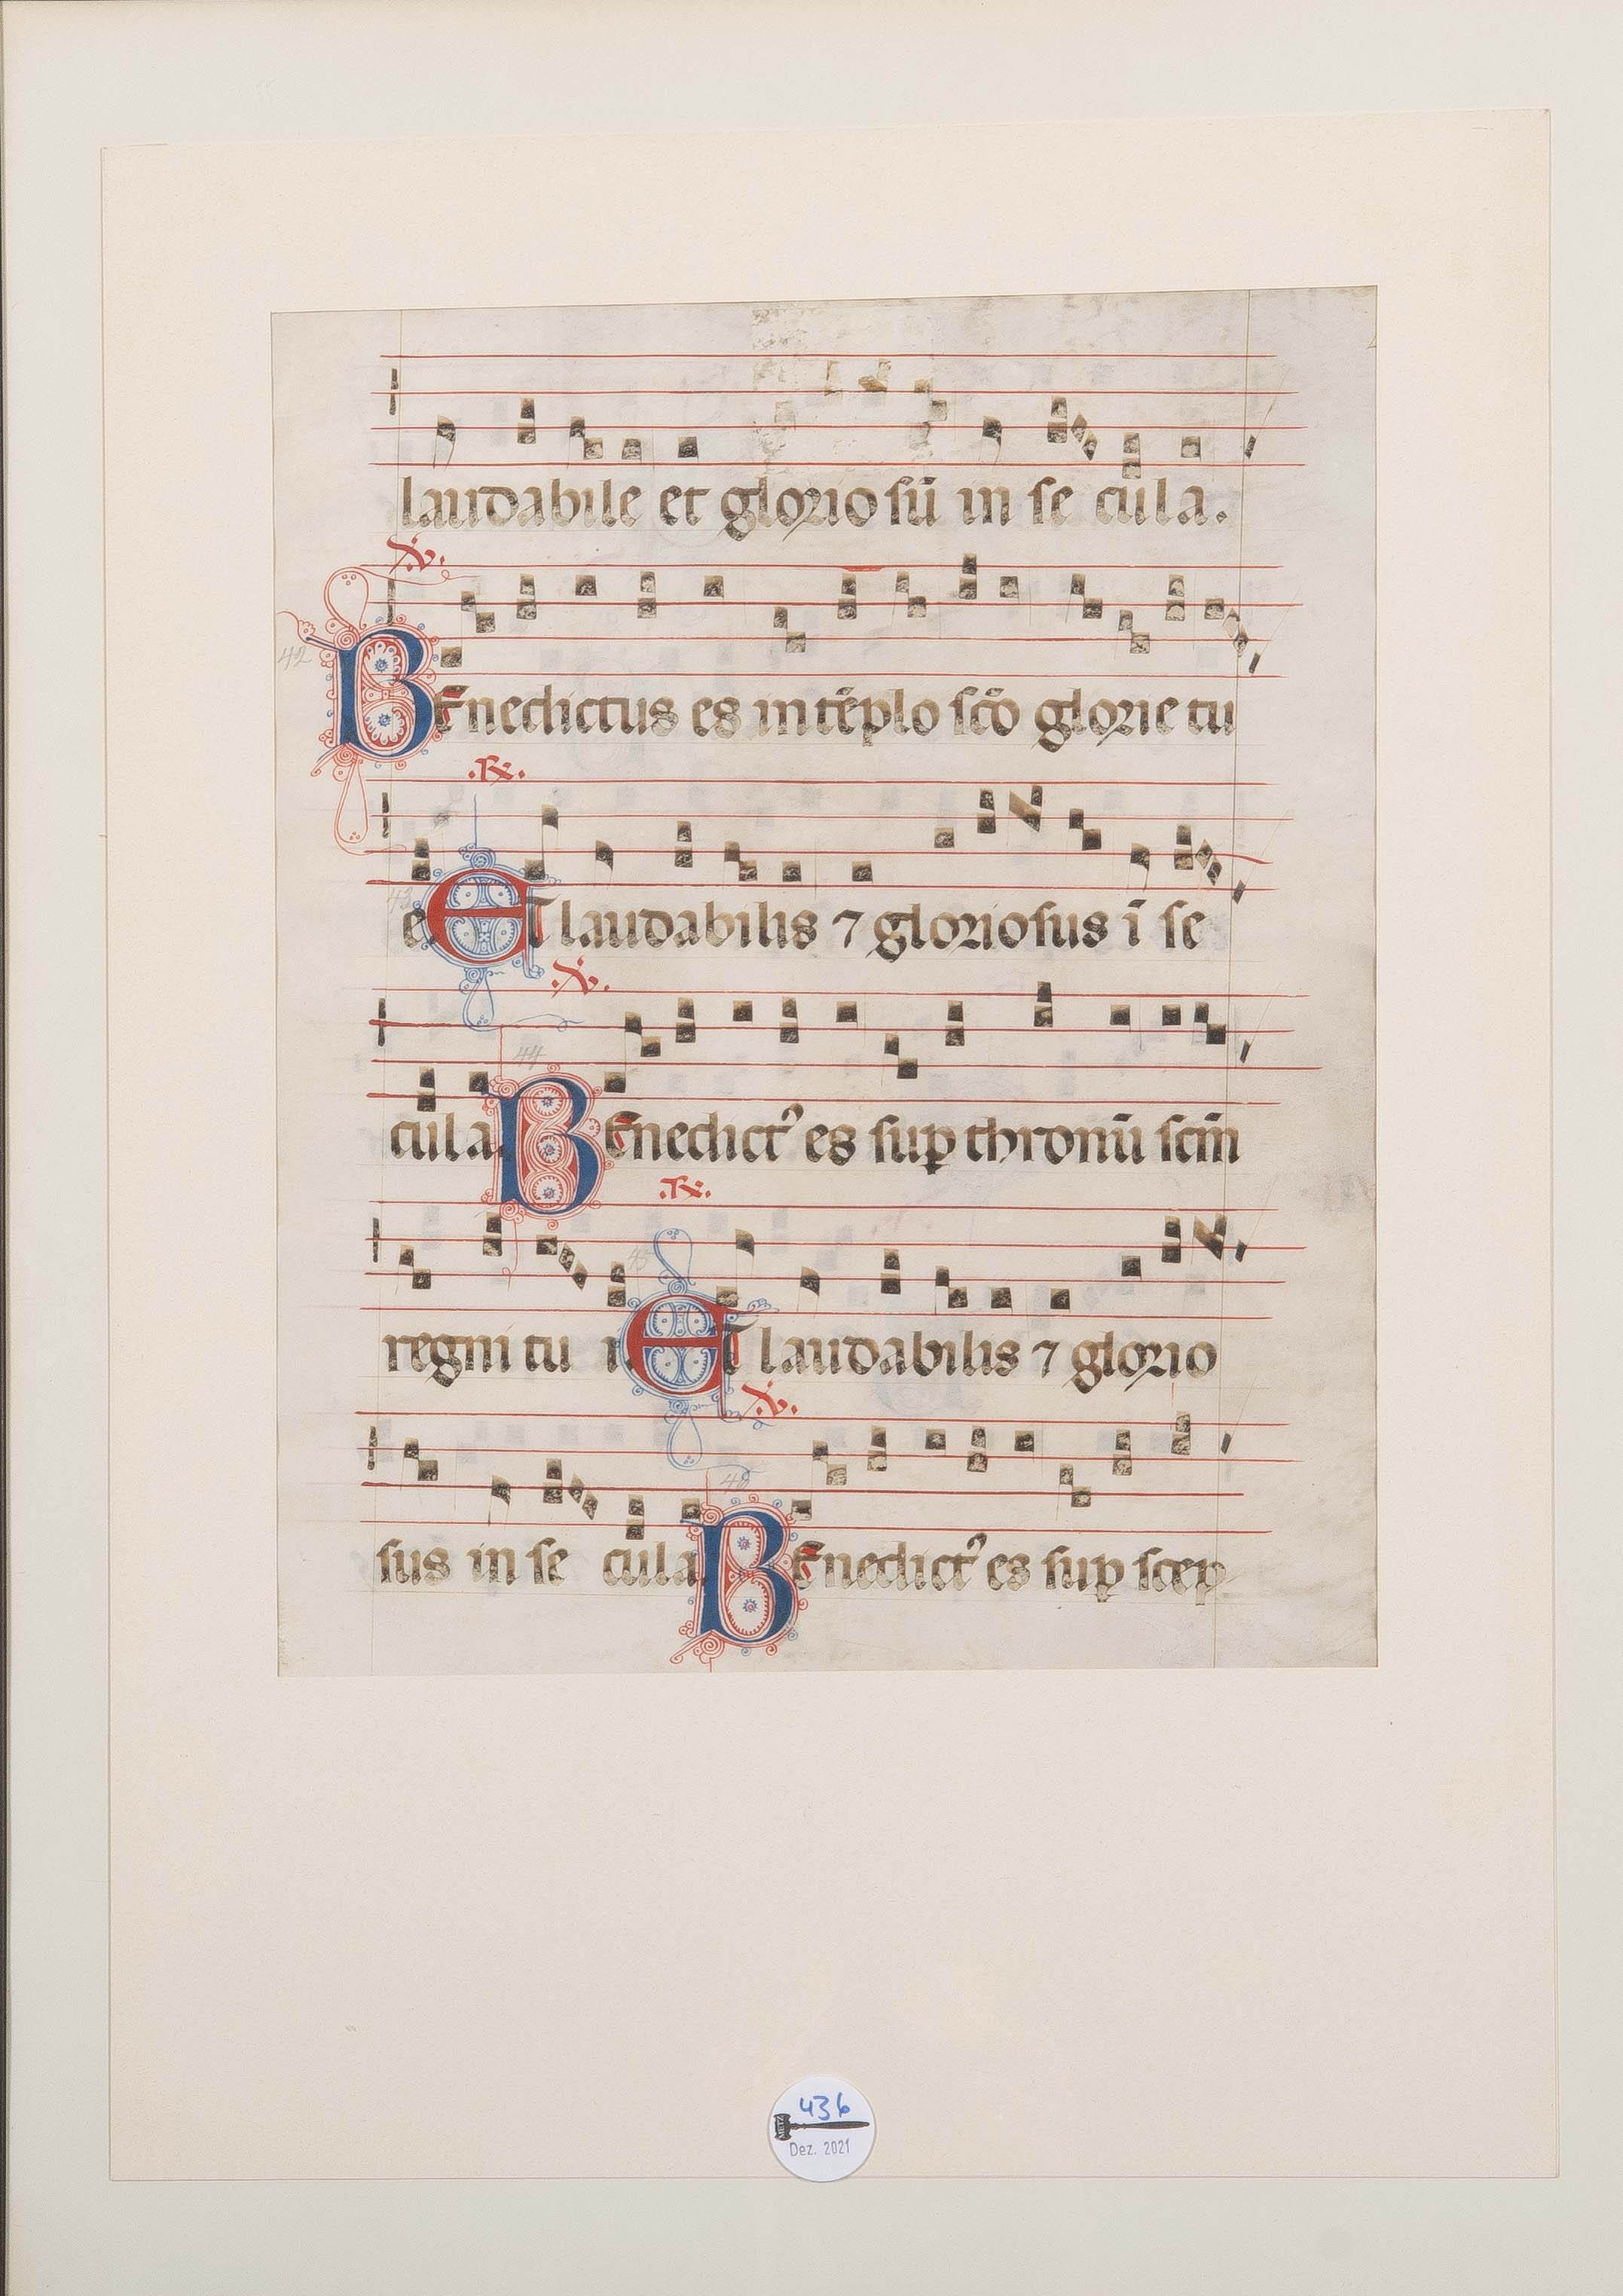 laudabile et gloriosū in se cula.
℣.
42
BEnedictus es in tēplo scō glorie tu
.℟.
43
e. ET laudabilis ⁊ gloriosus ī se
.℣.
44
cula. BEnedictꝰ es suꝑ thronū scm̄
.℟.
45
regni tu i. ET laudabilis ⁊ glorio
.℣.
46
sus in se cula. BEnedictꝰ es suꝑ scep
436
METZ
Dez. 2021